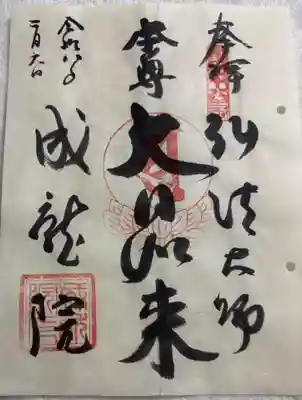 奉拝 弘法大師
本尊 大日如来
令和
月六日
成龍院